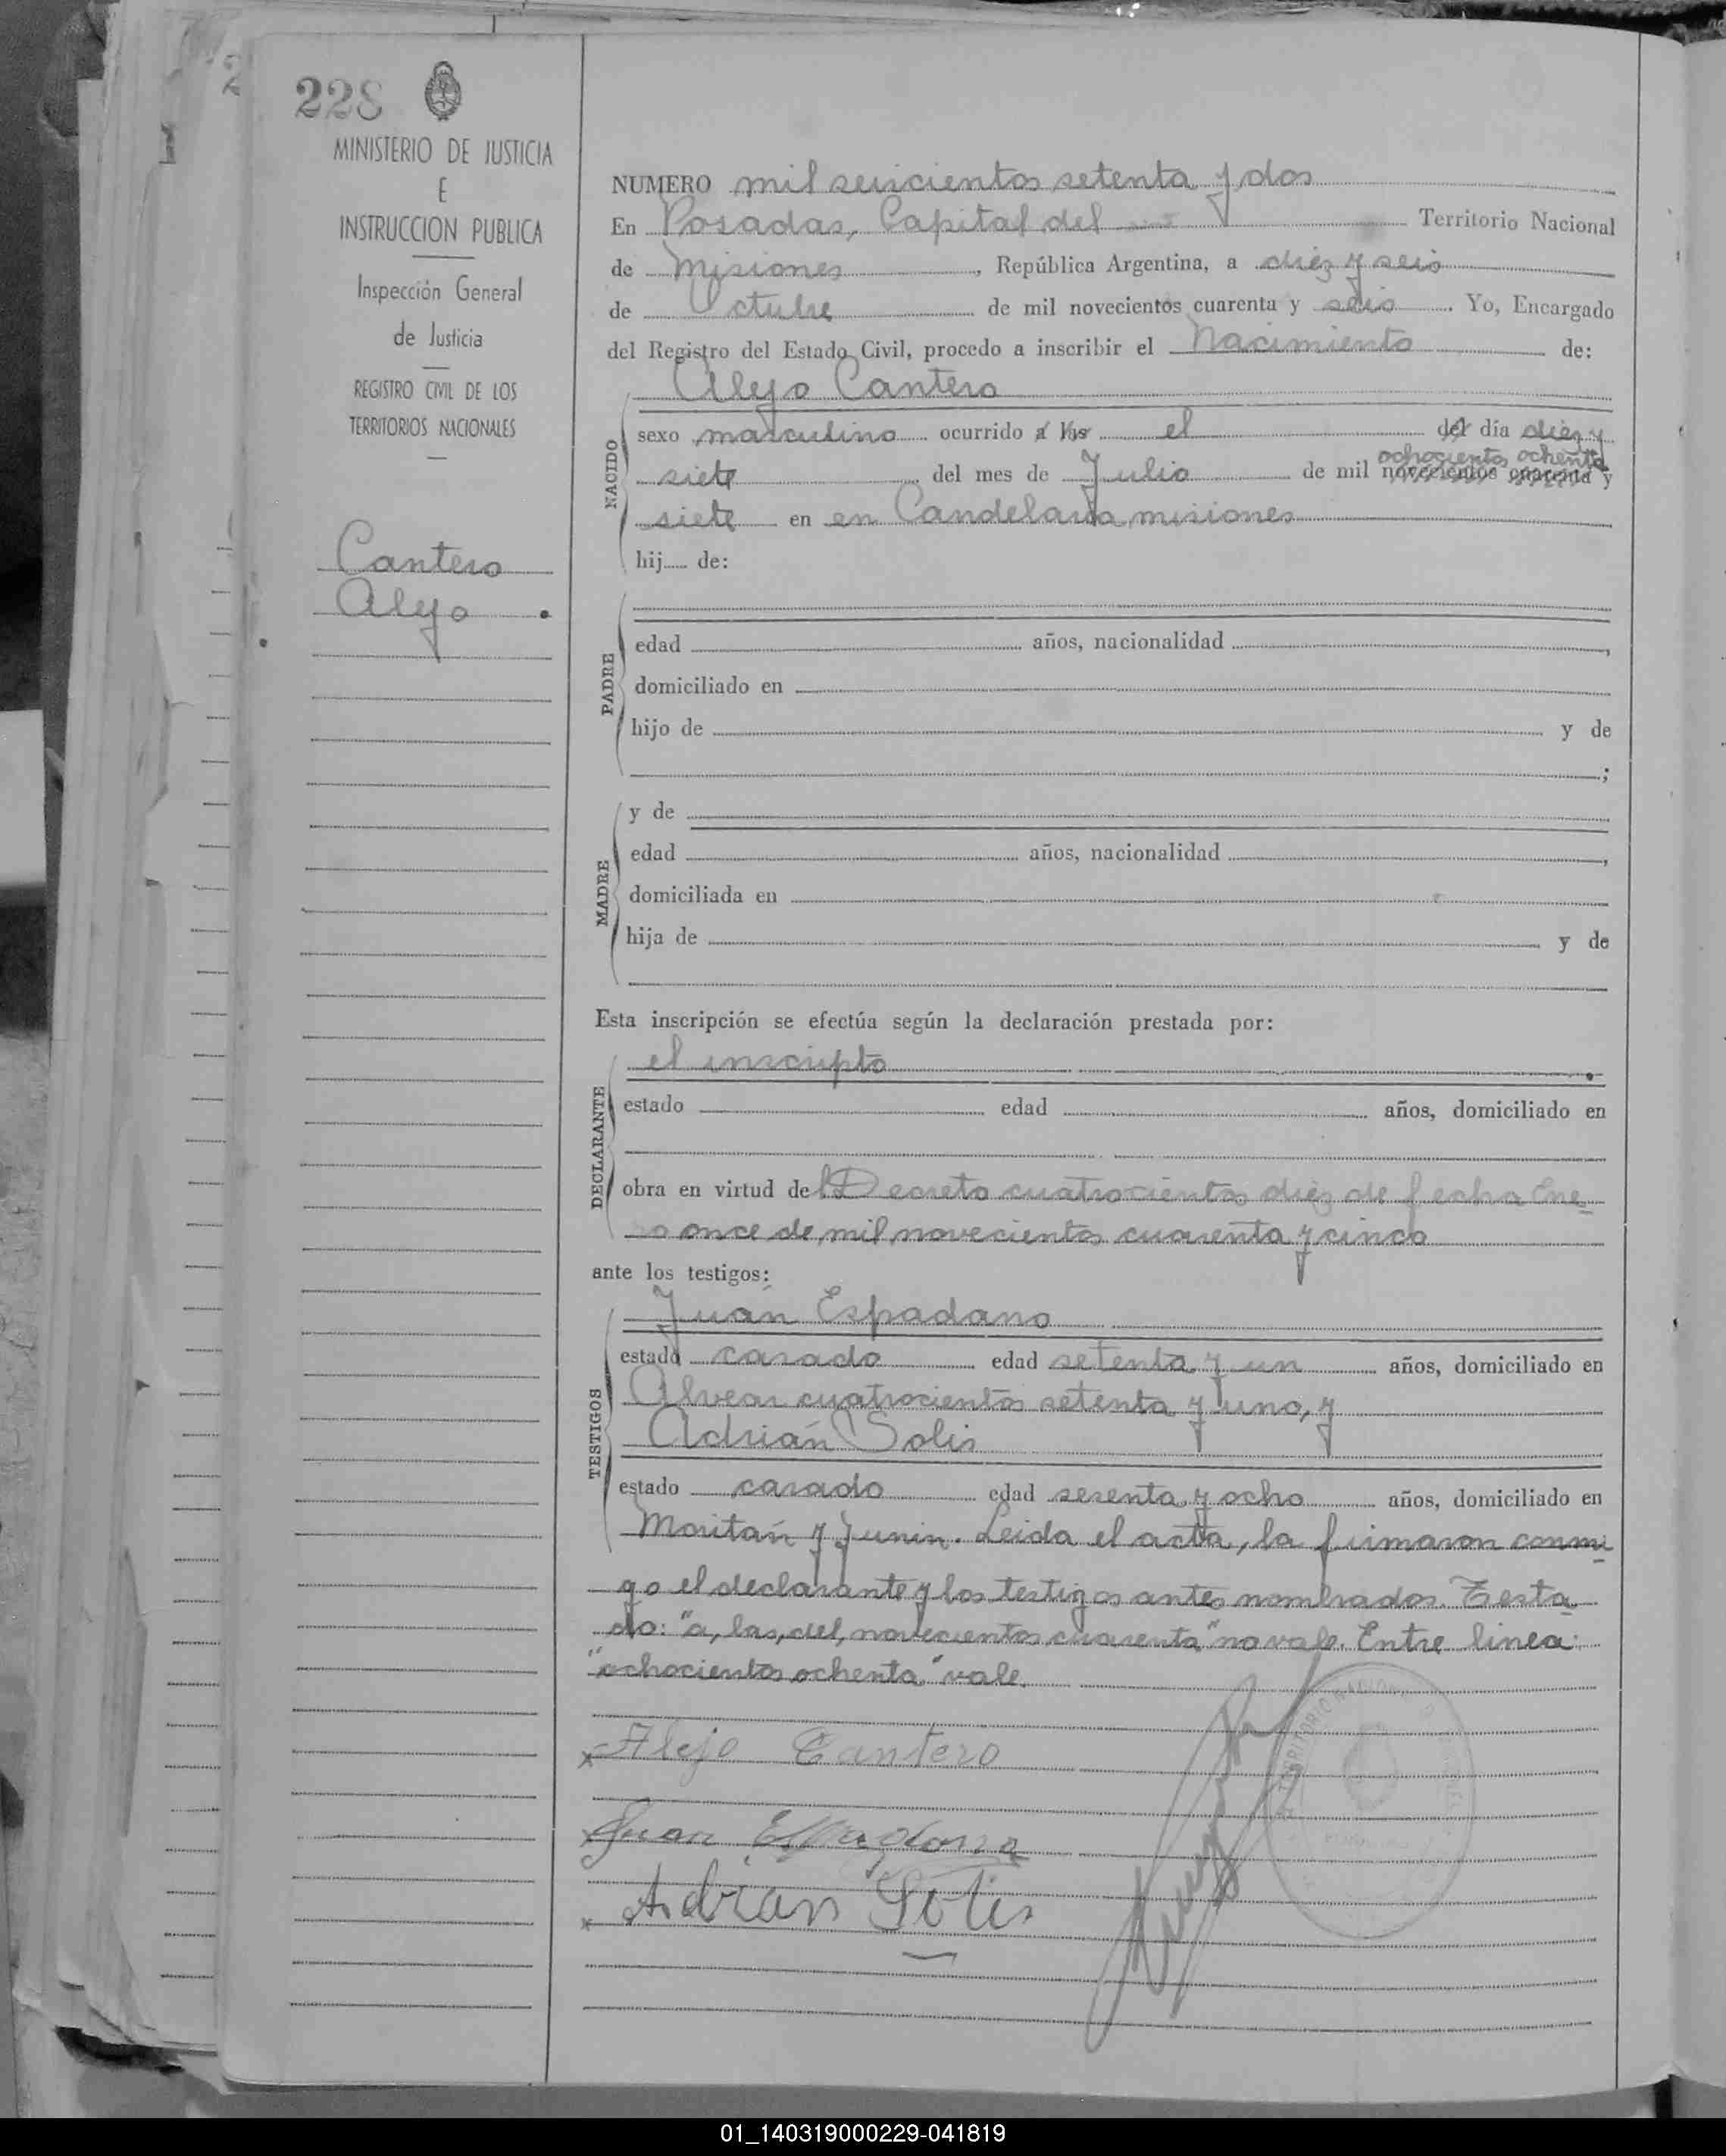 228
MINISTERIO DE JUSTICIA
E
INSTRUCCION PUBLICA
Inspección General
de Justicia
REGISTRO CIVIL DE LOS
TERRITORIOS NACIONALES
Cantero
Alejo
NUMERO mil seiscientos setenta y dos
En Posadas, Capital del Territorio Nacional
de Misiones, República Argentina, a diez y seis
de Octubre de mil novecientos cuarenta y seis. Yo, Encargado
del Registro del Estado Civil, procedo a inscribir el Nacimiento de:
Alejo Cantero
NACIDO
sexo masculino ocurrido a las el del día diez y
ochocientos ochenta
siete del mes de Julio de mil novecientos cuarenta y
siete en en Candelaria misiones
hij de:
PADRE
edad años, nacionalidad ,
domiciliado en
hijo de y de
;
MADRE
y de
edad años, nacionalidad ,
domiciliada en
hija de y de
Esta inscripción se efectúa según la declaración prestada por:
DECLARANTE
el inscripto
estado edad años, domiciliado en
obra en virtud del Decreto cuatrocientos diez de fecha Ene
ro once de mil novecientos cuarenta y cinco
ante los testigos:
TESTIGOS
Juan Espadano
estado casado edad setenta y un años, domiciliado en
Alvear cuatrocientos setenta y uno, y
Adrián Solis
estado casado edad sesenta y ocho años, domiciliado en
Moritán y Junin. Leida el acta, la firmaron conmi
go el declarante y los testigos antes nombrados. Testa
do: "a, las, del, novecientos cuarenta" no vale. Entre linea:
"ochocientos ochenta" vale.
x Alejo Cantero
x Juan Espadano
x Adrian Solis
TERRITORIO NACIONAL
01_140319000229-041819